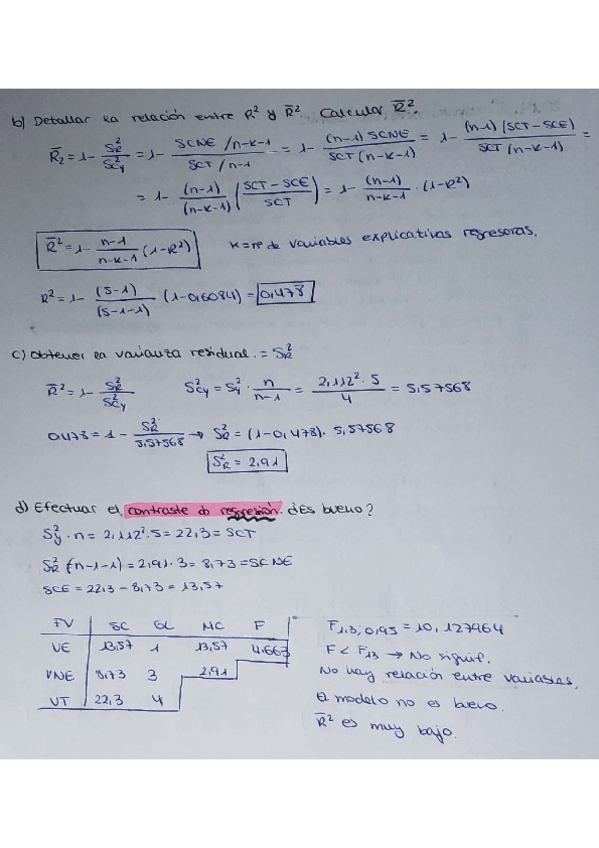 b) Detallar la relación entre R² y R̄². Calcular R̄².
R̄₂ = 1 - S²R / S²Cy = 1 - (SCNE/n-k-1) / (SCT/n-1) = 1 - (n-1) SCNE / SCT (n-k-1) = 1 - (n-1) (SCT-SCE) / SCT (n-k-1) =
= 1 - (n-1) / (n-k-1) (SCT-SCE / SCT) = 1 - (n-1) / n-k-1 · (1-R²)
R̄² = 1 - n-1 / n-k-1 (1-R²) K = nº de variables explicativas regresoras.
R² = 1 - (5-1) / (5-1-1) (1-0,6084) = 0,478
c) Obtener la varianza residual. = S²R
R̄² = 1 - S²R / S²Cy S²Cy = S²y · n / n-1 = 2,112² · 5 / 4 = 5,57568
0,473 = 1 - S²R / 5,57568 → S²R = (1-0,478) · 5,57568
S²R = 2,91
d) Efectuar el contraste de regresión. ¿Es bueno?
S²y · n = 2,112² · 5 = 22,3 = SCT
S²R (n-1-1) = 2,91 · 3 = 8,73 = SCNE
SCE = 22,3 - 8,73 = 13,57
FV SC GL MC F
VE 13,57 1 13,57 4,663
VNE 8,73 3 2,91
VT 22,3 4
F1,3; 0,95 = 10,127964
F < F13 → No signif.
No hay relación entre variables.
El modelo no es bueno.
R̄² es muy bajo.